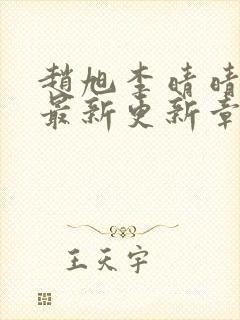 趙旭李晴晴
最新更新章
王天宇